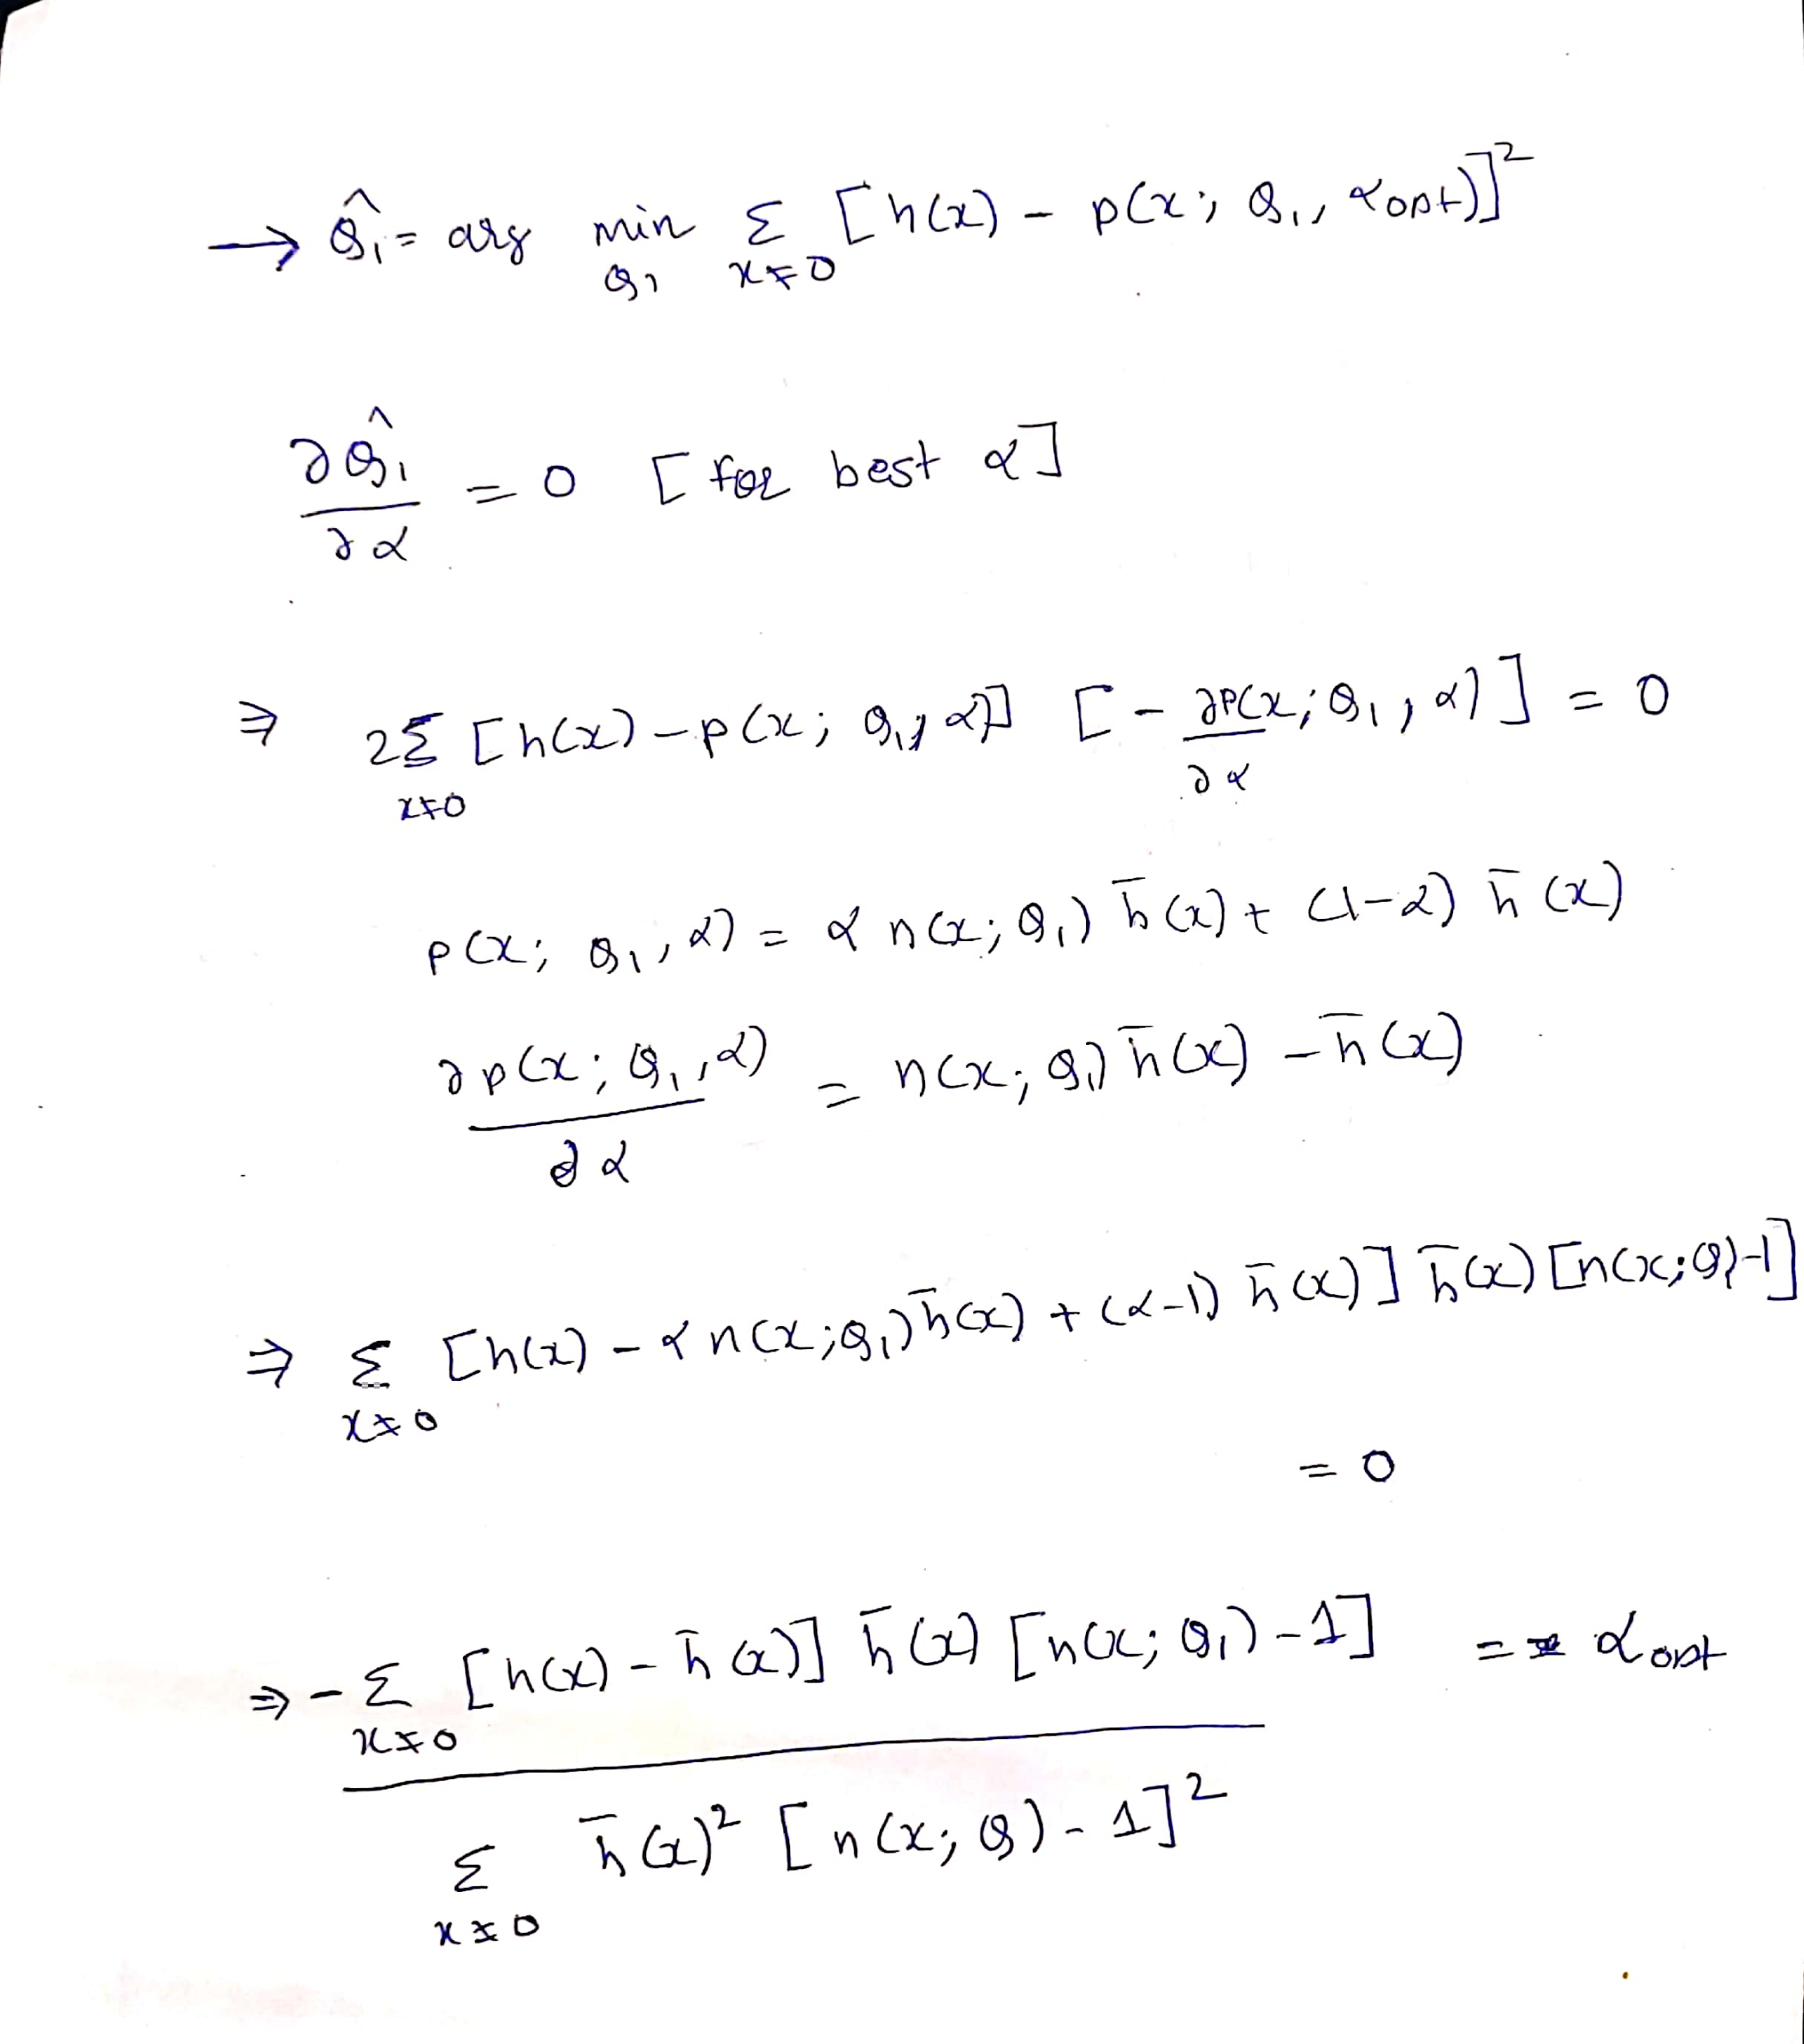 → Q̂₁ = arg min Σ [h(x) - p(x; Q₁, αopt)]²
Q₁ x≠0
∂Q̂₁ / ∂α = 0 [for best α]
⇒ 2Σ [h(x) - p(x; Q₁, α)] [- ∂P(x; Q₁, α) / ∂α] = 0
x≠0
p(x; Q₁, α) = α n(x; Q₁) h̄(x) + (1-α) h̄(x)
∂p(x; Q₁, α) / ∂α = n(x; Q₁) h̄(x) - h̄(x)
⇒ Σ [h(x) - α n(x; Q₁) h̄(x) + (α-1) h̄(x)] h̄(x) [n(x; Q)-1]
x≠0
= 0
⇒ - Σ [h(x) - h̄(x)] h̄(x) [n(x; Q₁) - 1] = αopt
x≠0
Σ h̄(x)² [n(x; Q) - 1]²
x≠0